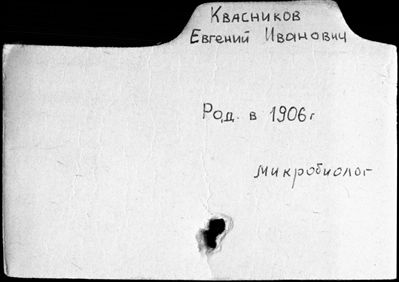 Квасников
Евгений Иванович
Род. в 1906г
микробиолог